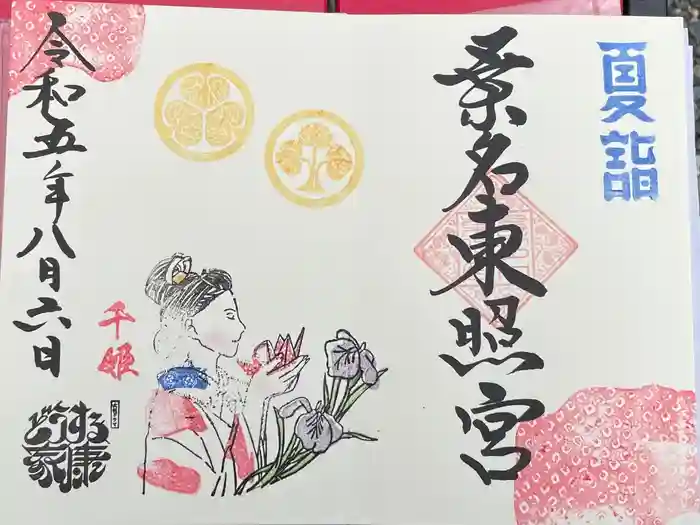 夏詣
桑名東照宮
千姫
令和五年八月六日
どうする
家康